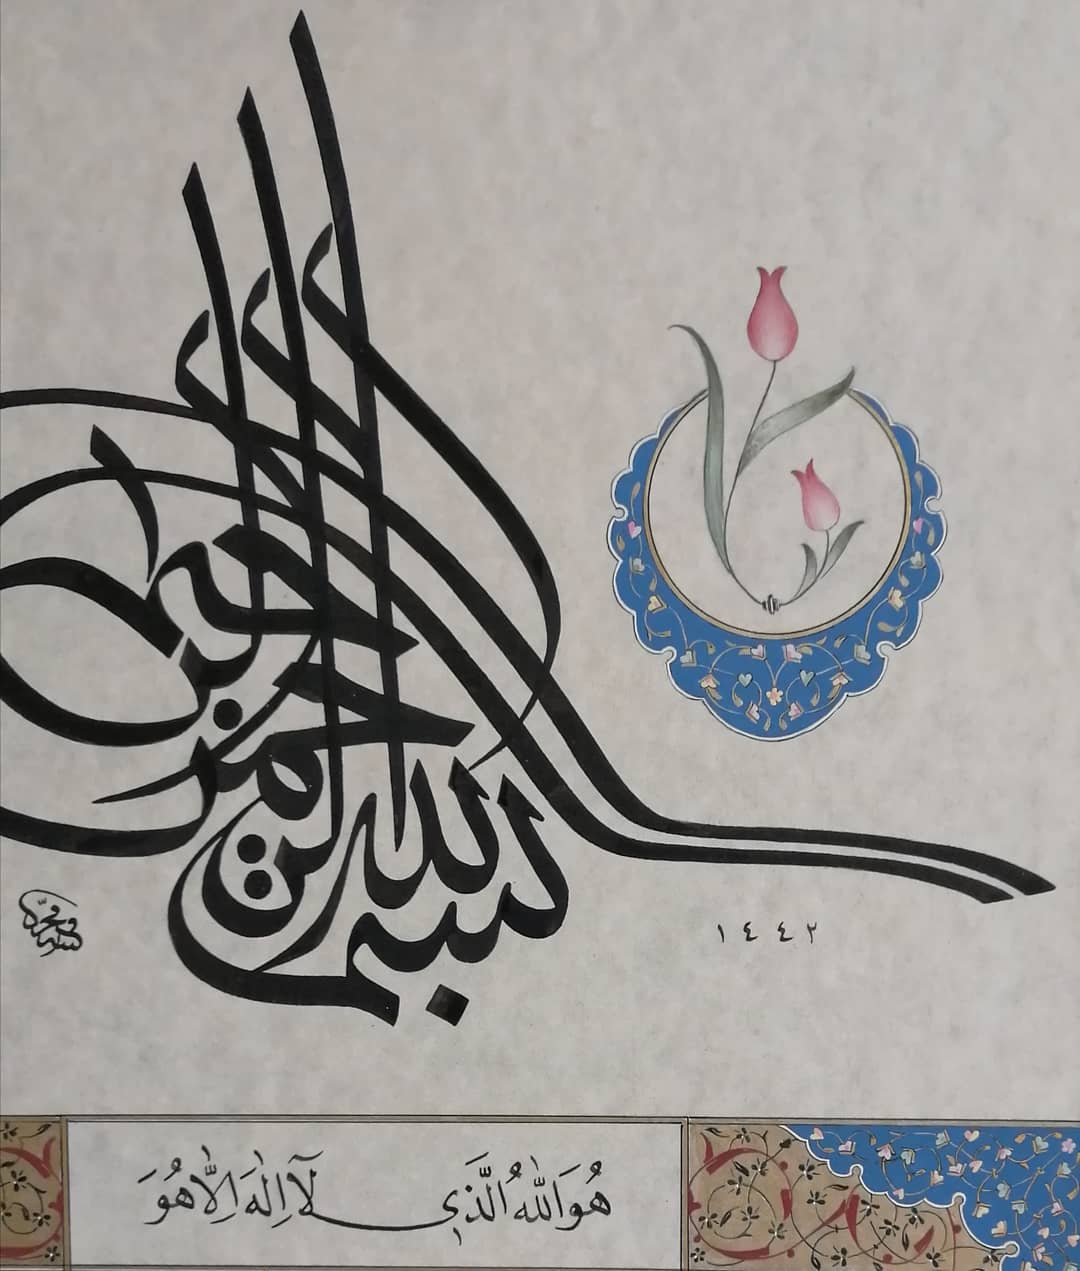 بسم الله الرحمن الرحيم
١٤٤٢
هُوَ اللهُ الَّذِي لَا اِلٰهَ اِلَّا هُوَ